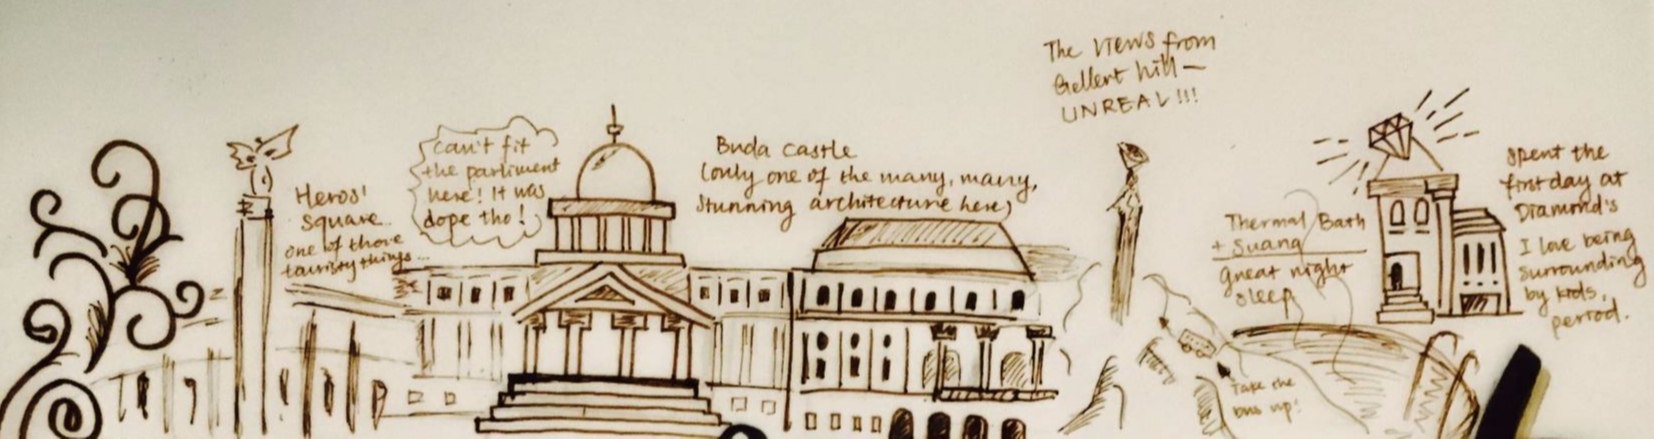 Heros'
Square...
one of those
touristy things...
can't fit
the parliment
here! It was
dope tho!
Buda castle
(only one of the many, many,
stunning architecture here)
The views from
Gellert hill —
UNREAL!!!
Take the
bus up!
Thermal Bath
+ Suana
great night
sleep
spent the
first day at
Diamond's
I love being
surrounding
by kids,
period.